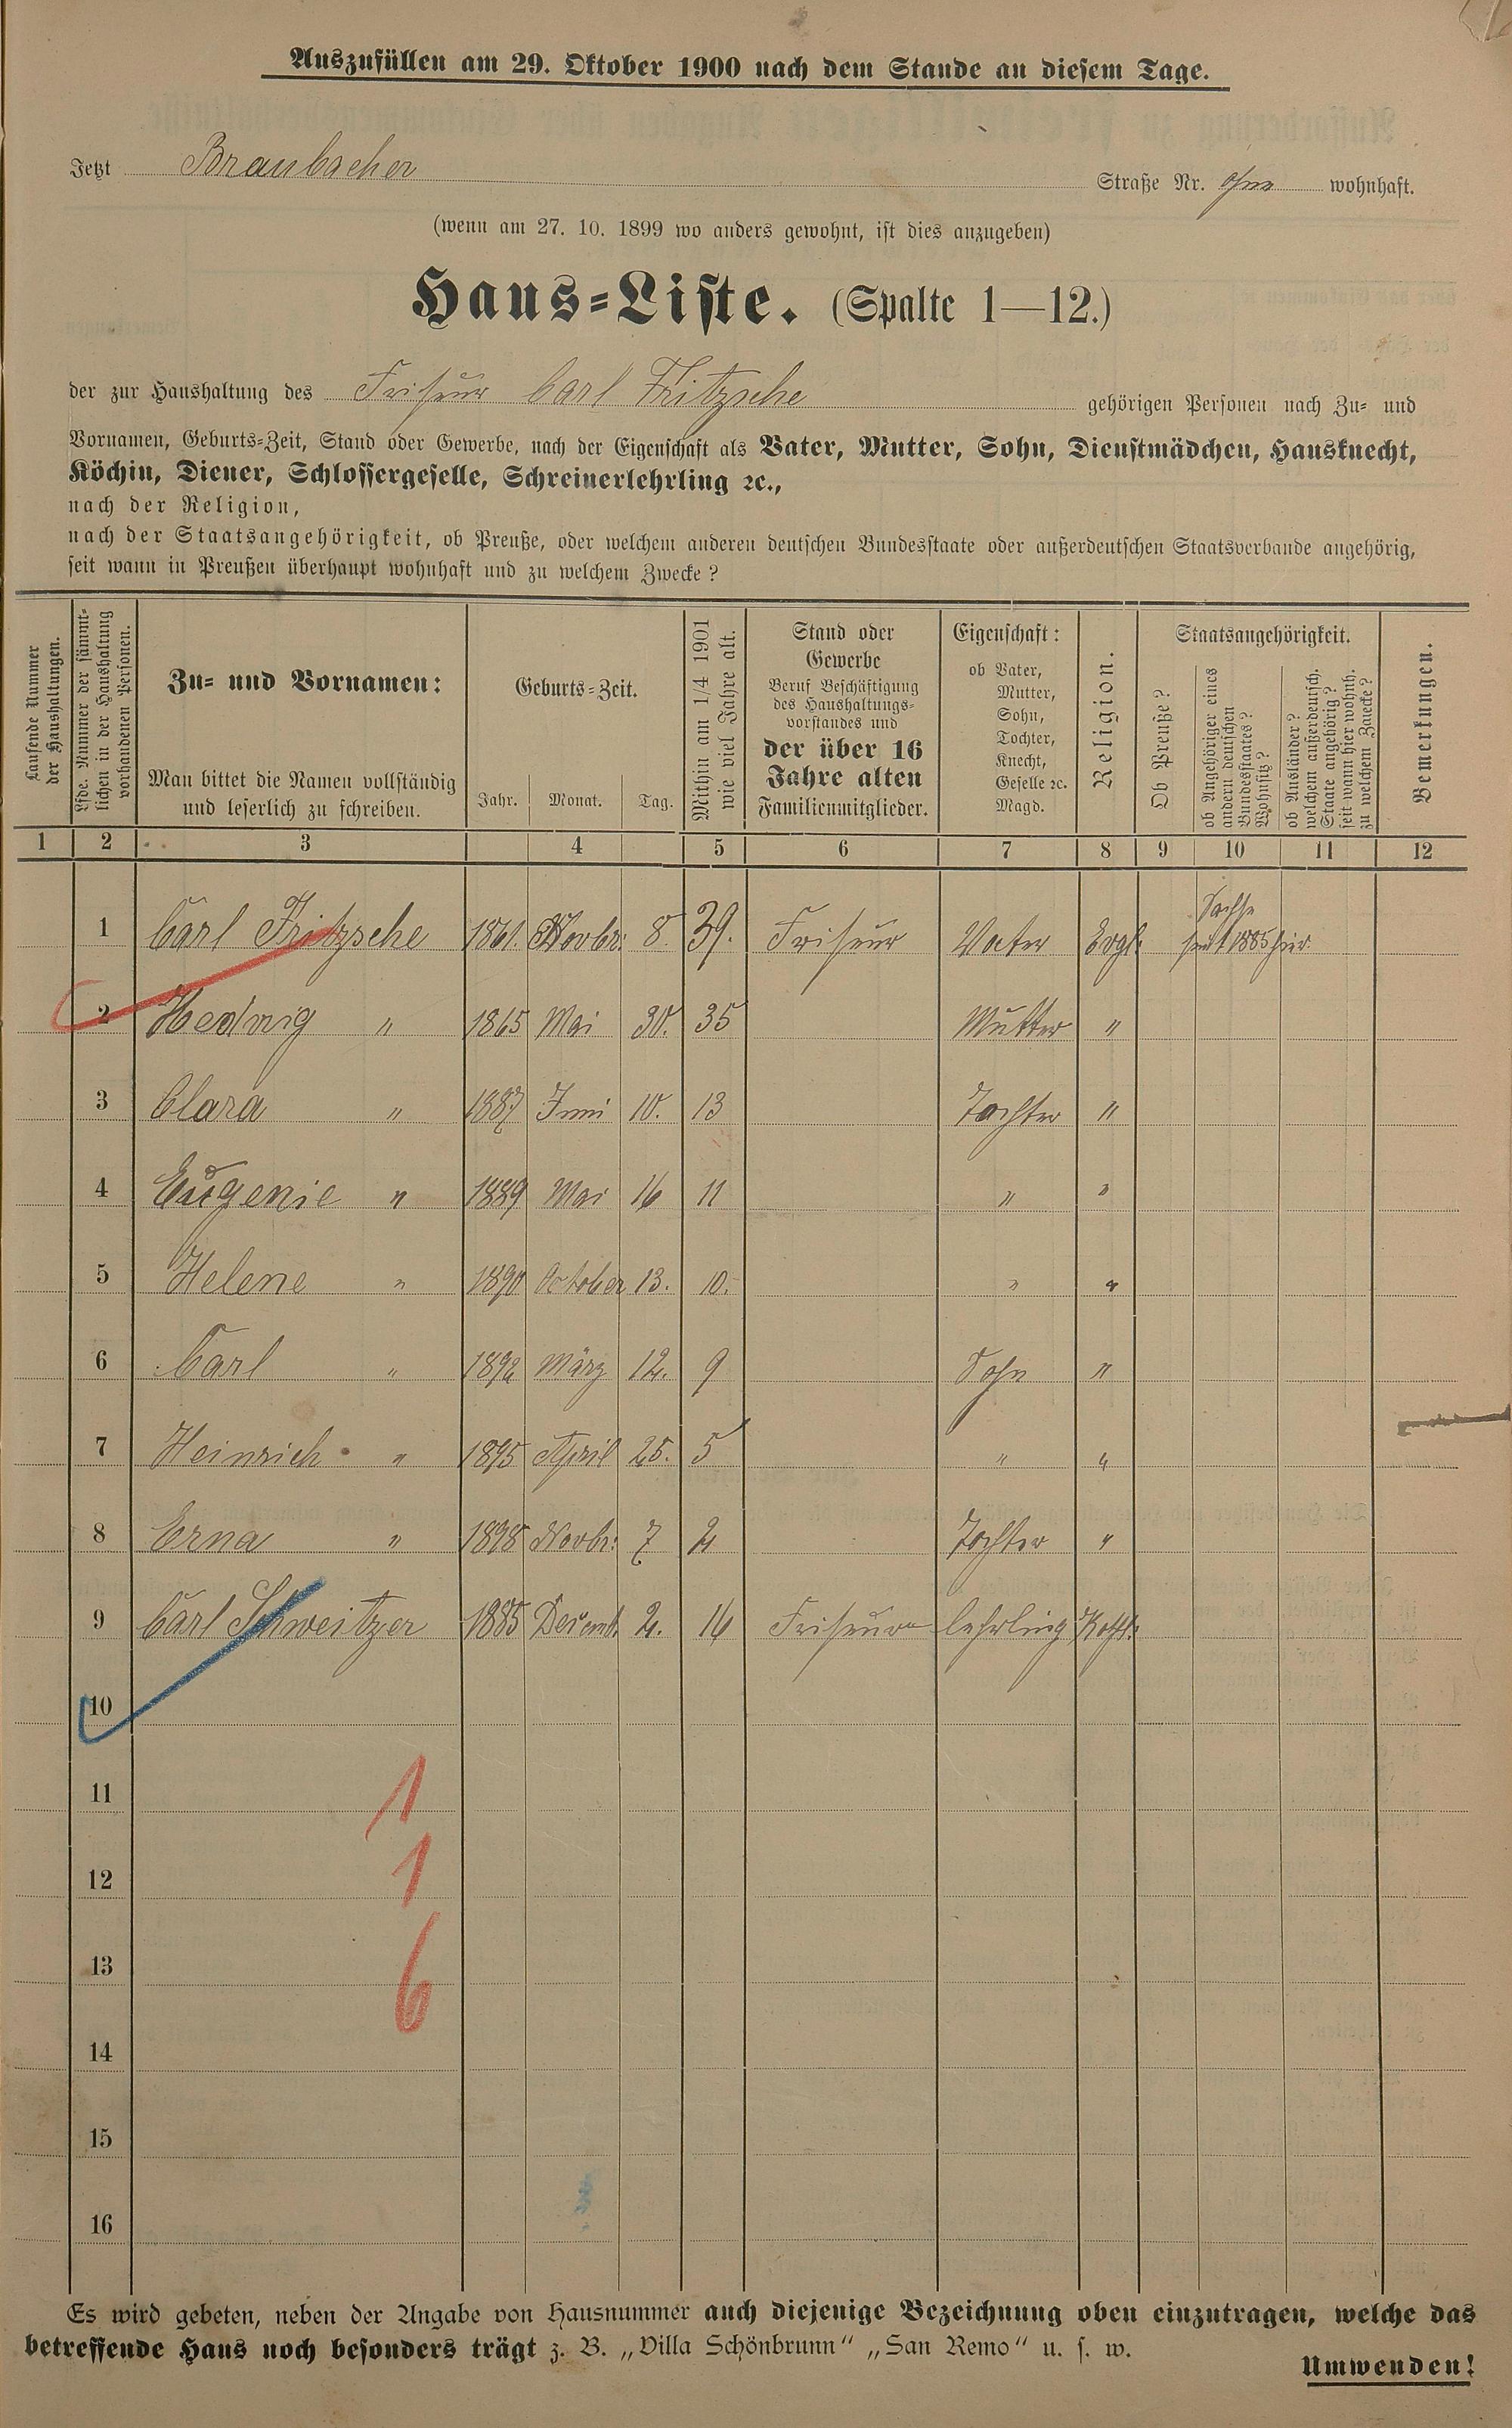 Auszufüllen am 29. Oktober 1900 nach dem Stande an diesem Tage.
Jetzt Braubacher Straße Nr. ohne wohnhaft.
(wenn am 27. 10. 1899 wo anders gewohnt, ist dies anzugeben)
Haus-Liste. (Spalte 1—12.)
der zur Haushaltung des Friseur Carl Fritzsche gehörigen Personen nach Zu- und
Vornamen, Geburts-Zeit, Stand oder Gewerbe, nach der Eigenschaft als Vater, Mutter, Sohn, Dienstmädchen, Hausknecht,
Köchin, Diener, Schlossergeselle, Schreinerlehrling ꝛc.,
nach der Religion,
nach der Staatsangehörigkeit, ob Preuße, oder welchem anderen deutschen Bundesstaate oder außerdeutschen Staatsverbande angehörig,
seit wann in Preußen überhaupt wohnhaft und zu welchem Zwecke?
Laufende Nummer
der Haushaltungen.
Lfde. Nummer der sämmt-
lichen in der Haushaltung
vorhandenen Personen.
Zu- und Vornamen:
Man bittet die Namen vollständig
und leserlich zu schreiben.
Geburts-Zeit.
Jahr. Monat. Tag.
Mithin am 1/4 1901
wie viel Jahre alt.
Stand oder
Gewerbe
Beruf Beschäftigung
des Haushaltungs-
vorstandes und
der über 16
Jahre alten
Familienmitglieder.
Eigenschaft:
ob Vater,
Mutter,
Sohn,
Tochter,
Knecht,
Geselle ꝛc.
Magd.
Religion.
Staatsangehörigkeit.
Ob Preuße?
ob Angehöriger eines
andern deutschen
Bundesstaates?
Wohnsitz?
ob Ausländer?
welchem außerdeutsch.
Staate angehörig?
seit wann hier wohnh.
zu welchem Zwecke?
Bemerkungen.
1 2 3 4 5 6 7 8 9 10 11 12
Sachse
1 Carl Fritzsche 1861. Novbr. 8. 39. Friseur Vater Evgl. seit 1885 hier.
2 Hedwig " 1865 Mai 30. 35 Mutter "
3 Clara " 1887 Juni 10. 13 Tochter "
4 Eugenie " 1889 Mai 16 11 " "
5 Helene " 1890 October 13. 10. " "
6 Carl " 1892 März 12. 9 Sohn "
7 Heinrich " 1895 April 25. 5 " "
8 Erna " 1898 Novbr. 7 2 Tochter "
9 Carl Schweitzer 1885 Decemb. 2. 16 Friseur lehrling Kath.
10
11 1
12 1
13 6
14
15
16
Es wird gebeten, neben der Angabe von Hausnummer auch diejenige Bezeichnung oben einzutragen, welche das
betreffende Haus noch besonders trägt z. B. „Villa Schönbrunn“ „San Remo“ u. s. w.
Umwenden!